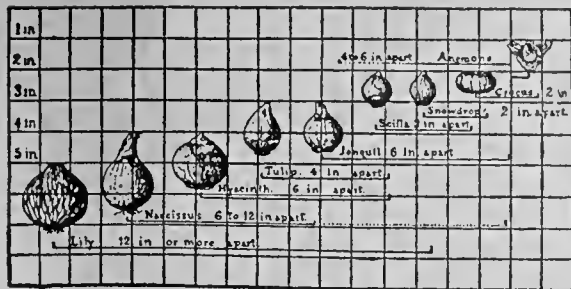 1 in
2 in
4 to 6 in apart Anemone
3 in
Crocus, 2 in
Snowdrop, 2 in apart
4 in
Scilla apart
5 in
Jonquil 6 in apart
Tulip. 4 in apart
Hyacinth. 6 in apart.
Narcissus 6 to 12 in apart
Lily 12 in or more apart